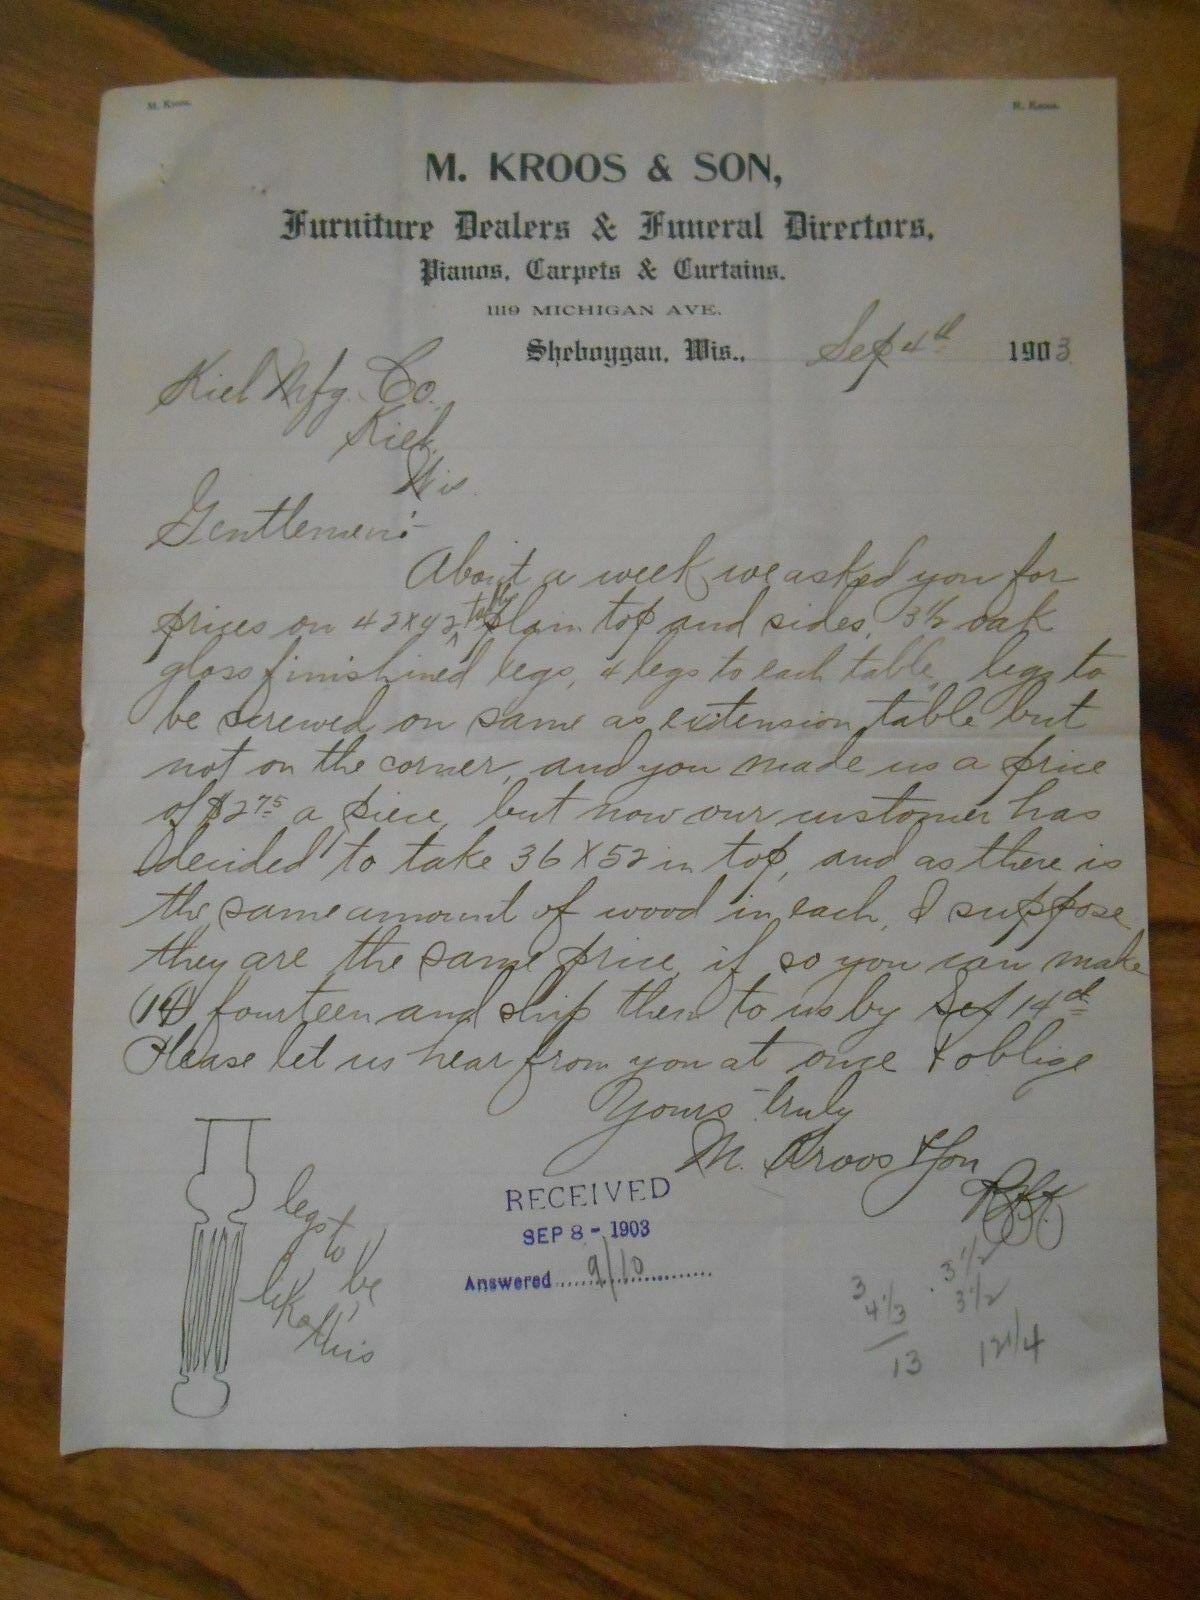 M. Kroos.
R. Kroos.
M. KROOS & SON,
Furniture Dealers & Funeral Directors,
Pianos, Carpets & Curtains.
1119 MICHIGAN AVE.
Sheboygan, Wis., Sep 4th 1903
Kiel Mfg. Co.
Kiel,
Wis.
Gentlemen:-
About a week we asked you for
prices on 42x42 table plain top and sides, 3 1/2 oak
gloss finishined legs, 4 legs to each table, legs to
be screwed on same as extension table but
not on the corner, and you made us a price
of $2 75 a piece, but now our customer has
decided to take 36 x 52 in top, and as there is
the same amount of wood in each, I suppose
they are the same price, if so you can make
(14) fourteen and ship them to us by Sep 14th
Please let us hear from you at once & oblige
Yours truly
M. Kroos & Son
legs to
be
like
this
RECEIVED
SEP 8 - 1903
Answered 9/10
3 1/2
3 1/2
12 1/4
3
4 1/3
13